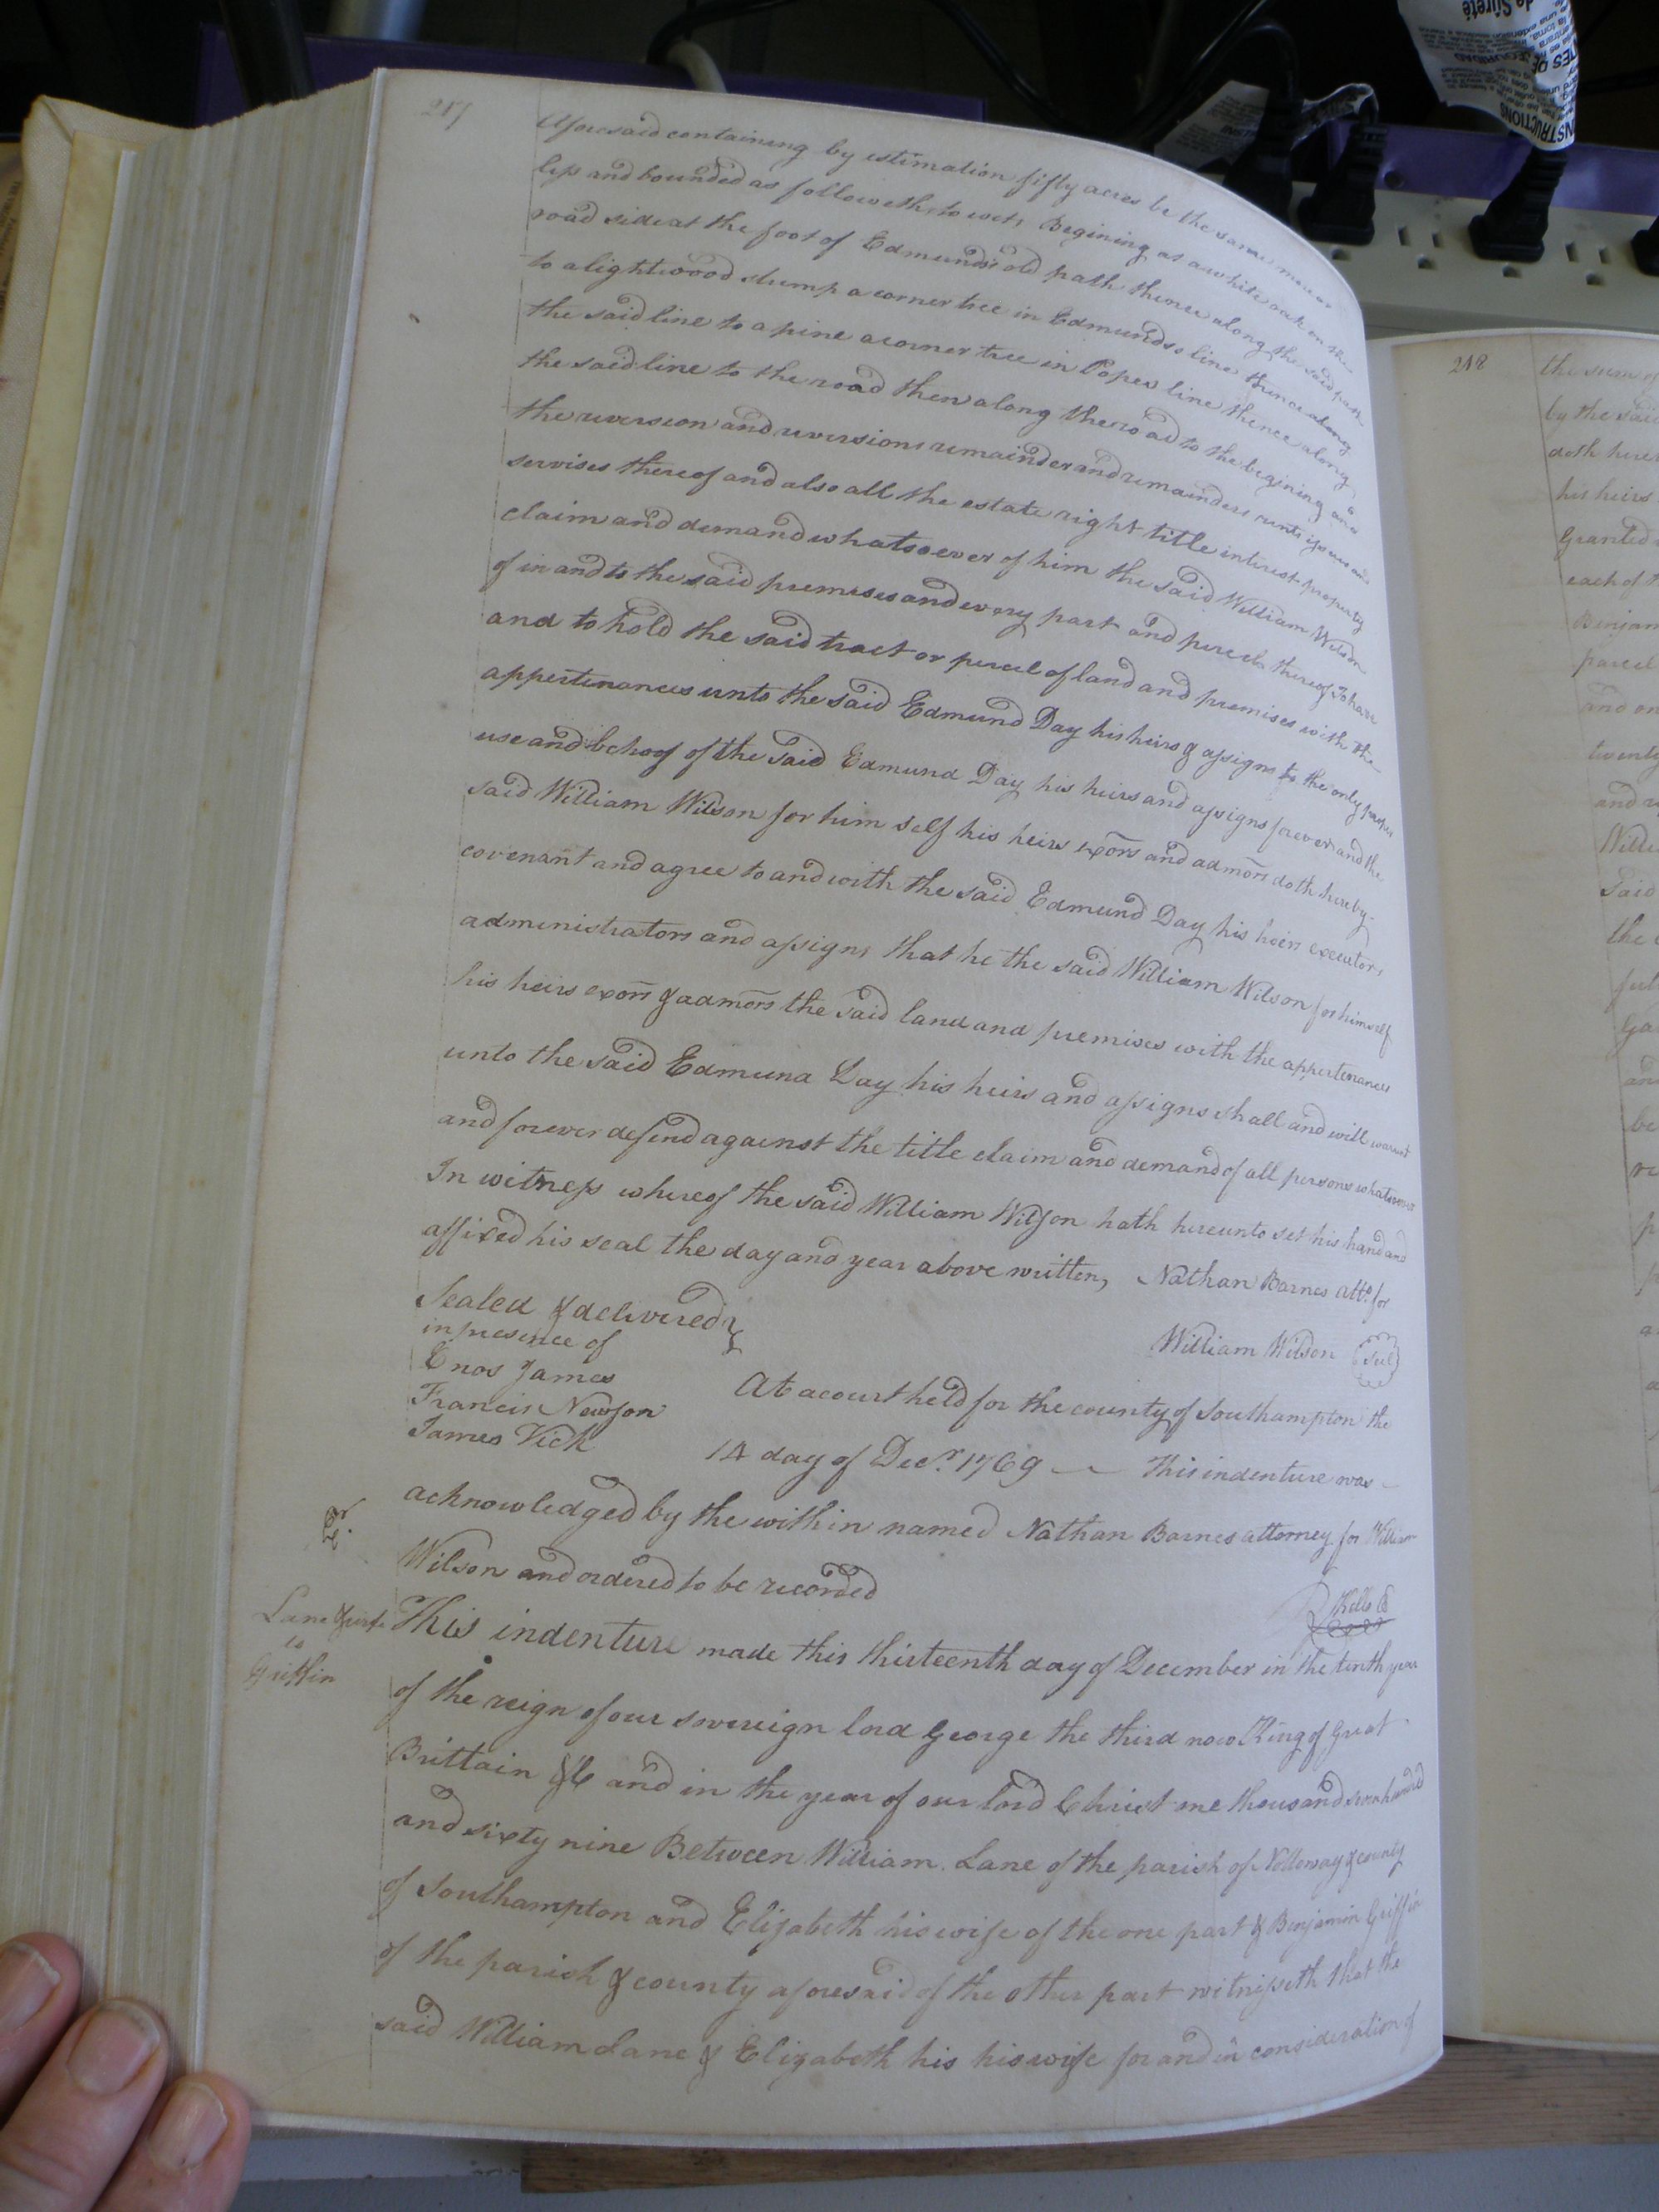 217
Aforesaid containing by estimation fifty acres be the same more or
less and bounded as followeth, to wit, Begining at a white oak on the
road side at the foot of Edmunds's old path thence along the said path
to a lightwood stump a corner tree in Edmunds's line thence along
the said line to a pine a corner tree in Popes line thence along
the said line to the road then along the road to the begining and
the reversion and reversions remainder and remainders rents issues and
servises thereof and also all the estate right title interest property
claim and demand whatsoever of him the said William Wilson
of in and to the said premises and every part and percel thereof To have
and to hold the said tract or percel of land and premises with the
appertenances unto the said Edmund Day his heirs & assigns to the only proper
use and behoof of the said Edmund Day his heirs and assigns forever and the
said William Wilson for him self his heirs exors and admors doth hereby
covenant and agree to and with the said Edmund Day his heirs executors
administrators and assigns that he the said William Wilson for himself
his heirs exors & admors the said land and premises with the appertenances
unto the said Edmund Day his heirs and assigns shall and will warrant
and forever defend against the title claim and demand of all persons whatsoever
In witness whereof the said William Wilson hath hereunto set his hand and
affixed his seal the day and year above written, Nathan Barnes atto. for
Sealed & delivered
William Wilson Seal
in presence of
Enos James
At a court held for the county of Southampton the
Francis Newsom
James Vick
14 day of Decr. 1769 — This indenture was
acknowledged by the within named Nathan Barnes attorney for William
Wilson and ordered to be recorded
Lane & wife
to
Griffin
This indenture made this thirteenth day of December in the tenth year
of the reign of our sovereign lord George the third now King of Great
Brittain &c and in the year of our lord Christ one thousand seven hundred
and sixty nine Between William Lane of the parish of Nottoway & county
of Southampton and Elizabeth his wife of the one part & Benjamin Griffin
of the parish & county aforesaid of the other part witnesseth that the
said William Lane & Elizabeth his his wife for and in consideration of
218
the sum of
by the said
doth here
his heirs
Granted
each of
Benjam
parcel
and on
twenty
and
Willi
said
the